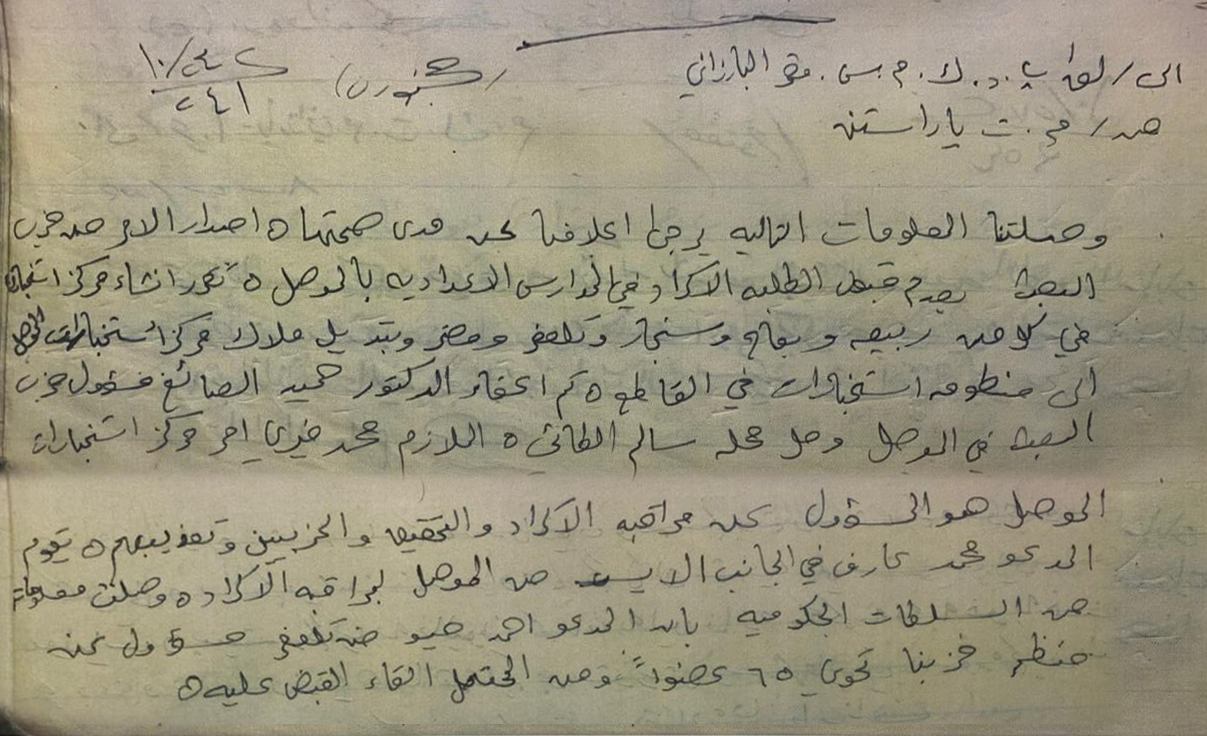 الى / لق / پ. د. ك. م. س. مقر البارزاني
من / م. ت پاراستن
وصلتنا المعلومات التاليه يرجى اعلامنا عن مدى صحتها ه اصدار الامر من حزب
البعث بعدم قبول الطلبه الاكراد في المدارس الاعداديه بالموصل ه تقرر انشاء مركز استخبارات
في كلا من ربيعه و بعاج و سنجار و تلعفر و مخمر وبتبديل ملاك مركز استخبارات الموصل
الى منظومه استخبارات في القاطع ه تم اعفاء الدكتور حميد الصائغ مسؤول حزب
البعث في الموصل وحل محله سالم الطائي ه اللازم محمد خيري امر مركز استخبارات
الموصل هو المسؤول عن مراقبه الاكراد والتحقيق والحزبيين وتعذيبهم ه يقوم
المدعو محمد عارف في الجانب الايسر من الموصل لمراقبه الاكراد ه وصلت معلومات
من السلطات الحكوميه بان المدعو احمد من تلعفر مسؤول عن
منظم حزبنا تحوي ٦٥ عضوا ومن المحتمل القاء القبض عليه ه